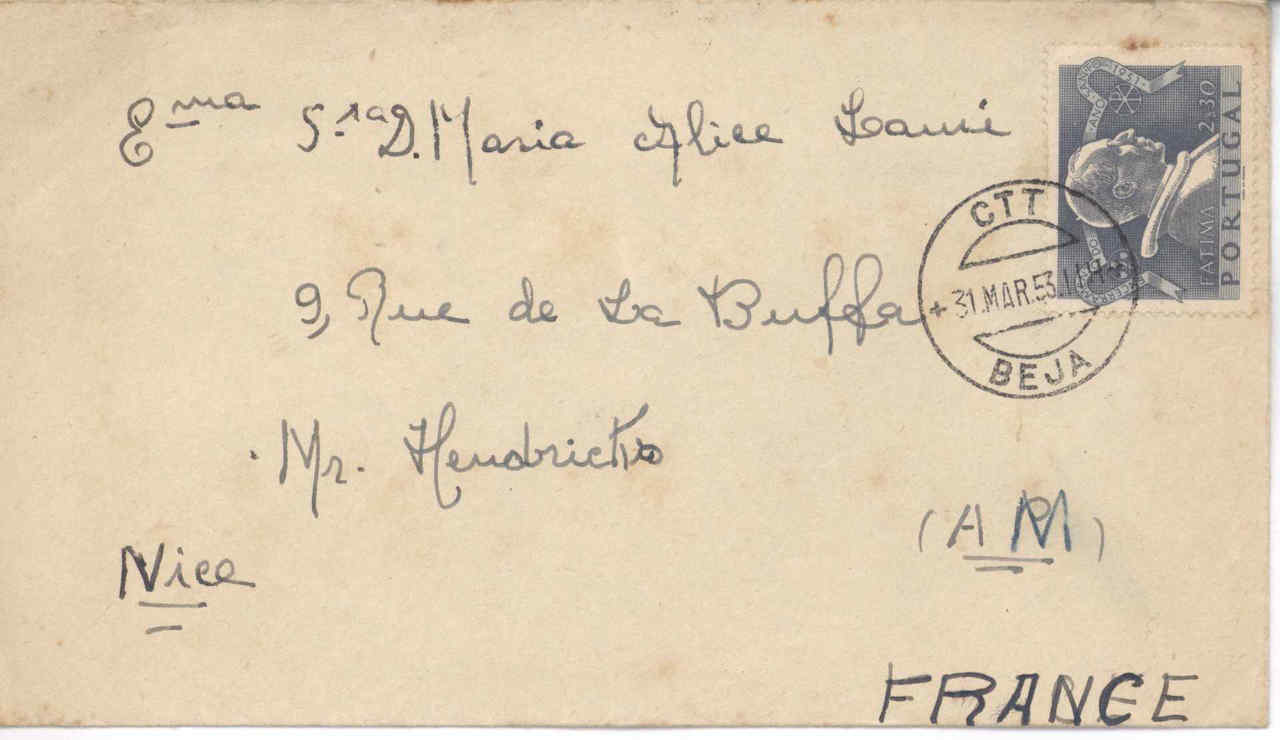 Ema Sra D. Maria Alice Lauri
9, Rue de La Buffa
Mr. Hendrickx
(A M)
Nice
FRANCE
CTT
31.MAR.53
BEJA
ANO SANTO - 1951 -
FATIMA 2$30
PORTUGAL